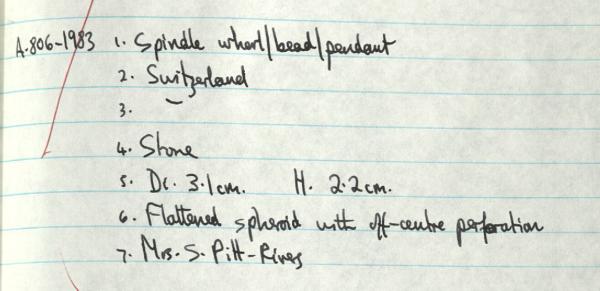 A.806-1983 1. Spindle whorl/bead/pendant
2. Switzerland
3. –
4. Stone
5. Di. 3.1cm. H. 2.2cm.
6. Flattened spheroid with off-centre perforation
7. Mrs. S. Pitt-Rivers